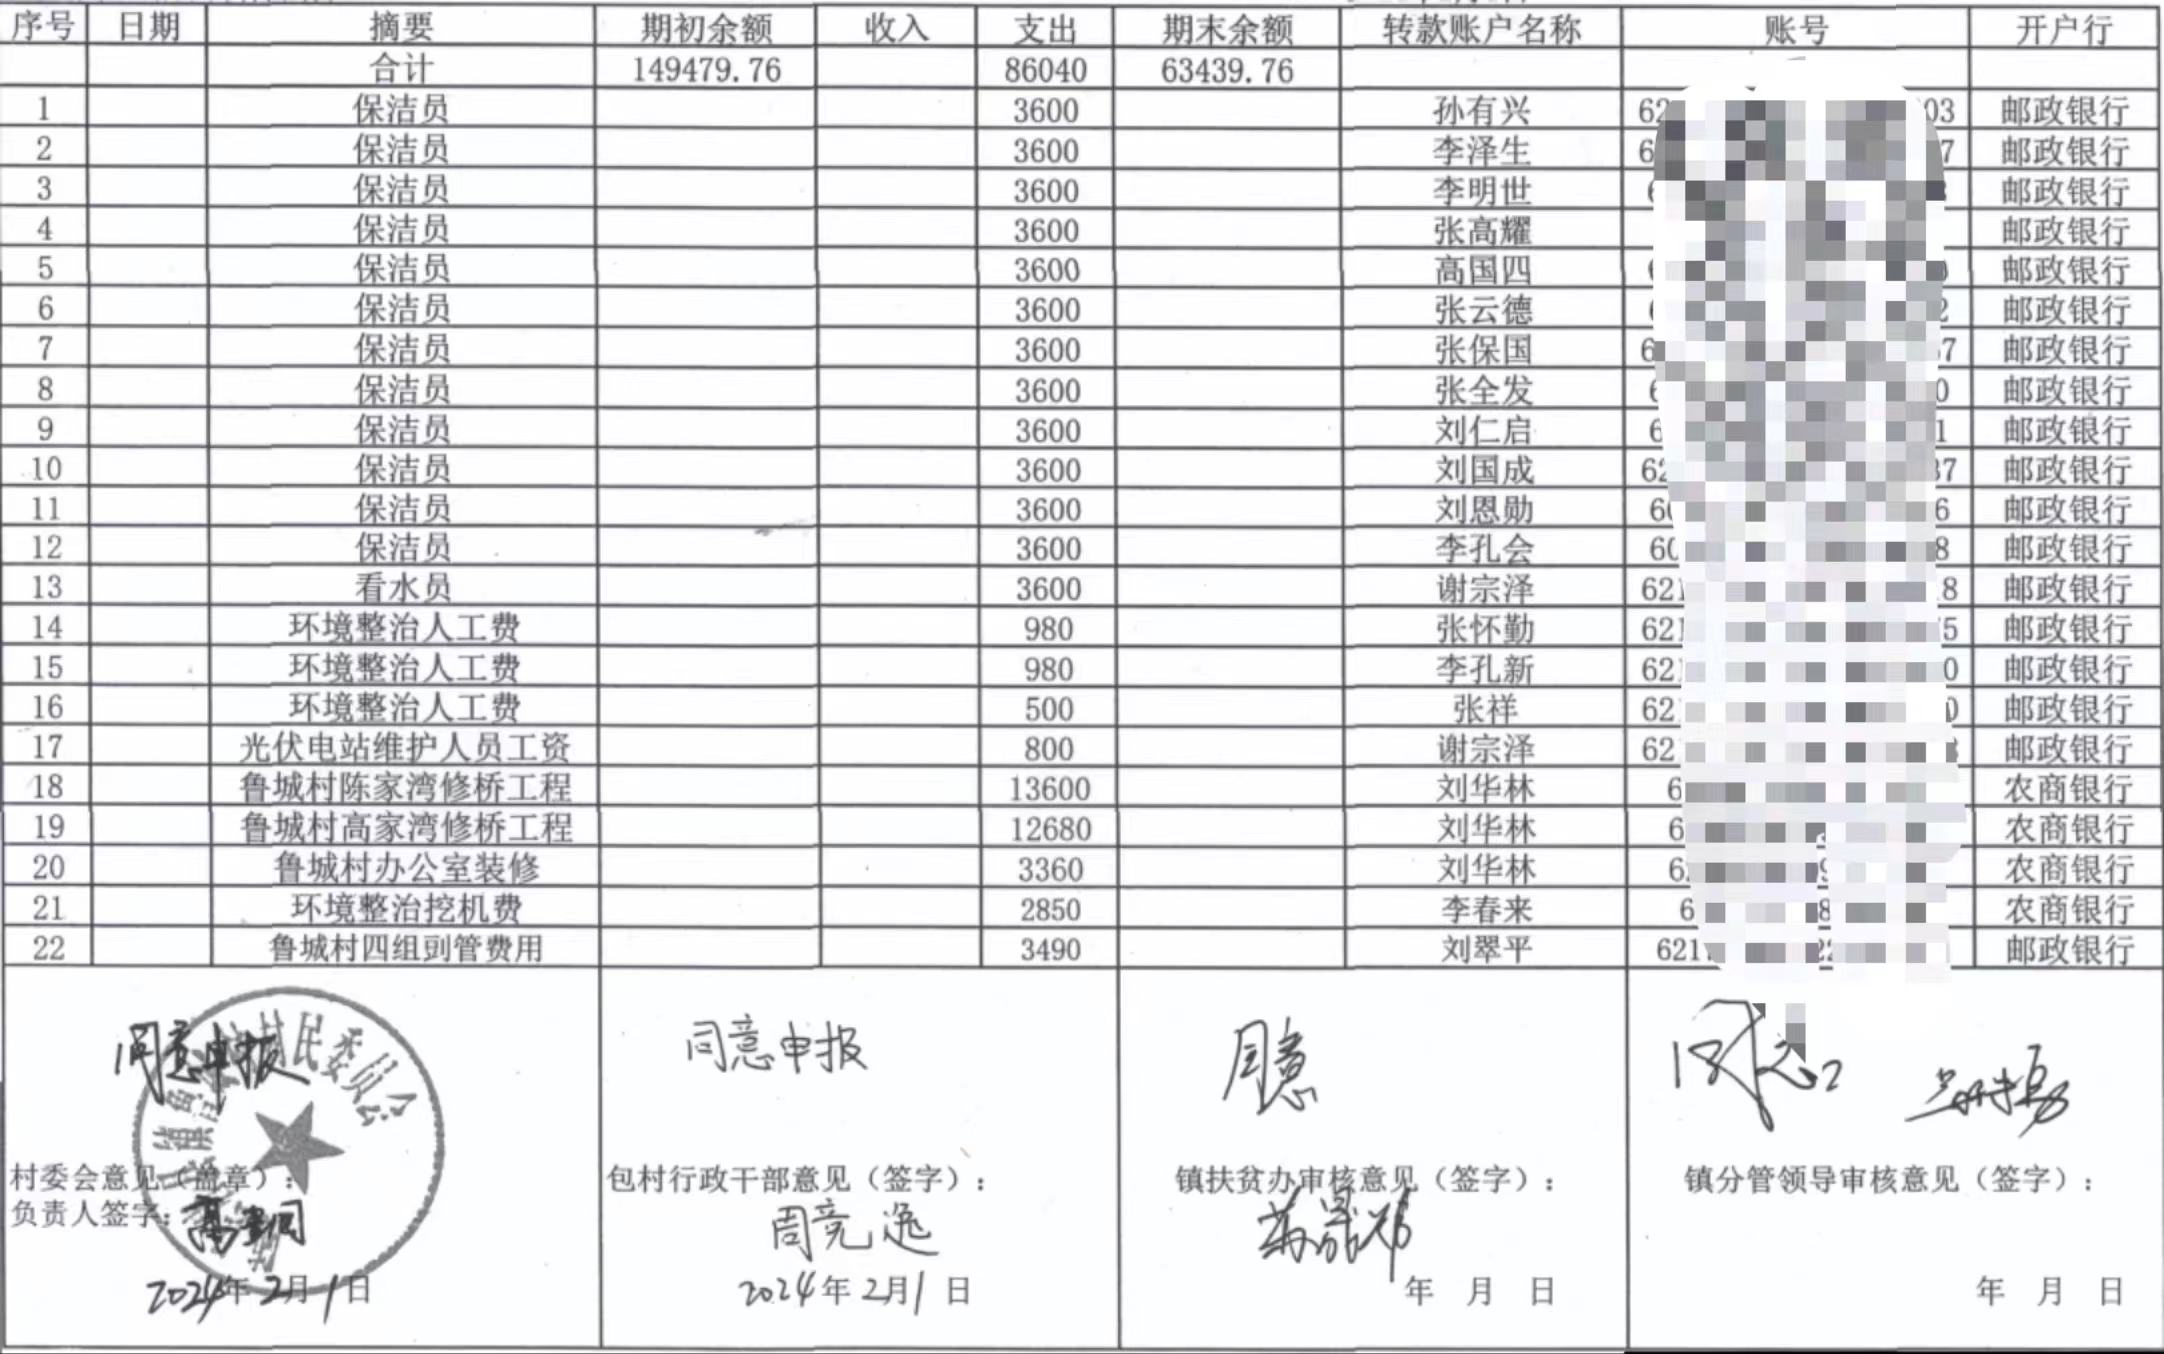 序号 日期 摘要 期初余额 收入 支出 期末余额 转款账户名称 账号 开户行
合计 149479.76 86040 63439.76
1 保洁员 3600 孙有兴 62 03 邮政银行
2 保洁员 3600 李泽生 6 7 邮政银行
3 保洁员 3600 李明世 邮政银行
4 保洁员 3600 张高耀 邮政银行
5 保洁员 3600 高国四 邮政银行
6 保洁员 3600 张云德 2 邮政银行
7 保洁员 3600 张保国 6 7 邮政银行
8 保洁员 3600 张全发 0 邮政银行
9 保洁员 3600 刘仁启 6 1 邮政银行
10 保洁员 3600 刘国成 62 37 邮政银行
11 保洁员 3600 刘恩勋 60 6 邮政银行
12 保洁员 3600 李孔会 60 8 邮政银行
13 看水员 3600 谢宗泽 621 8 邮政银行
14 环境整治人工费 980 张怀勤 621 5 邮政银行
15 环境整治人工费 980 李孔新 621 0 邮政银行
16 环境整治人工费 500 张祥 621 0 邮政银行
17 光伏电站维护人员工资 800 谢宗泽 621 邮政银行
18 鲁城村陈家湾修桥工程 13600 刘华林 6 农商银行
19 鲁城村高家湾修桥工程 12680 刘华林 6 农商银行
20 鲁城村办公室装修 3360 刘华林 6 9 农商银行
21 环境整治挖机费 2850 李春来 6 8 农商银行
22 鲁城村四组剅管费用 3490 刘翠平 621 22 邮政银行
同意申报 同意申报 同意 同意
村民委员会
村委会意见（盖章）： 包村行政干部意见（签字）： 镇扶贫办审核意见（签字）： 镇分管领导审核意见（签字）：
负责人签字：
周竞逸
2024年2月1日 2024年2月1日 年 月 日 年 月 日